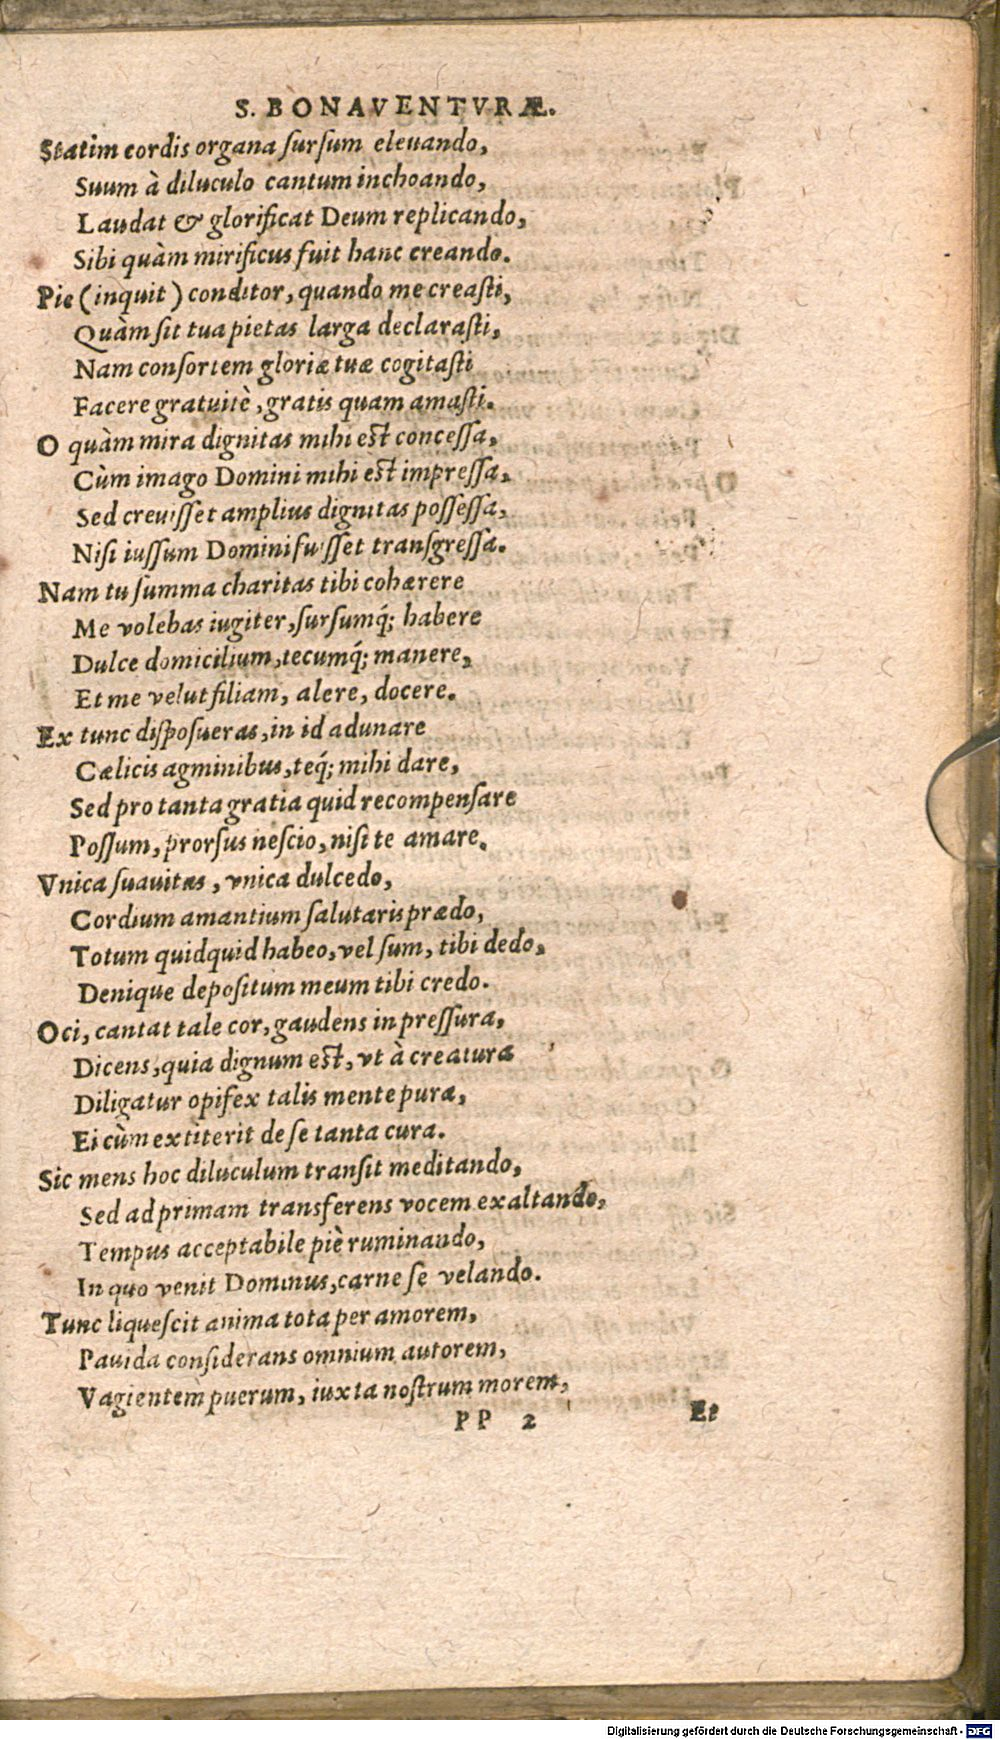 S. BONAVENTVRÆ.
Statim cordis organa ſurſum eleuando,
Suum à diluculo cantum inchoando,
Laudat & glorificat Deum replicando,
Sibi quàm mirificus fuit hanc creando.
Pie (inquit) conditor, quando me creaſti,
Quàm ſit tua pietas larga declaraſti,
Nam conſortem gloriæ tuæ cogitaſti
Facere gratuitè, gratis quam amaſti.
O quàm mira dignitas mihi eſt conceſſa,
Cùm imago Domini mihi eſt impreſſa,
Sed creuiſſet amplius dignitas poſſeſſa,
Niſi iuſſum Domini fuiſſet tranſgreſſa.
Nam tu ſumma charitas tibi cohærere
Me volebas iugiter, ſurſumq́; habere
Dulce domicilium, tecumq́; manere,
Et me velut filiam, alere, docere.
Ex tunc diſpoſueras, in id adunare
Cælicis agminibus, teq́; mihi dare,
Sed pro tanta gratia quid recompenſare
Poſſum, prorſus neſcio, niſi te amare.
Vnica ſuauitas, vnica dulcedo,
Cordium amantium ſalutaris prædo,
Totum quidquid habeo, vel ſum, tibi dedo,
Denique depoſitum meum tibi credo.
Oci, cantat tale cor, gaudens in preſſura,
Dicens, quia dignum eſt, vt à creatura
Diligatur opifex talis mente pura,
Ei cùm extiterit de ſe tanta cura.
Sic mens hoc diluculum tranſit meditando,
Sed ad primam transferens vocem exaltando,
Tempus acceptabile piè ruminando,
In quo venit Dominus, carne ſe velando.
Tunc liqueſcit anima tota per amorem,
Pauida conſiderans omnium autorem,
Vagientem puerum, iuxta noſtrum morem,
PP 2 Et
Digitalisierung gefördert durch die Deutsche Forschungsgemeinschaft - DFG